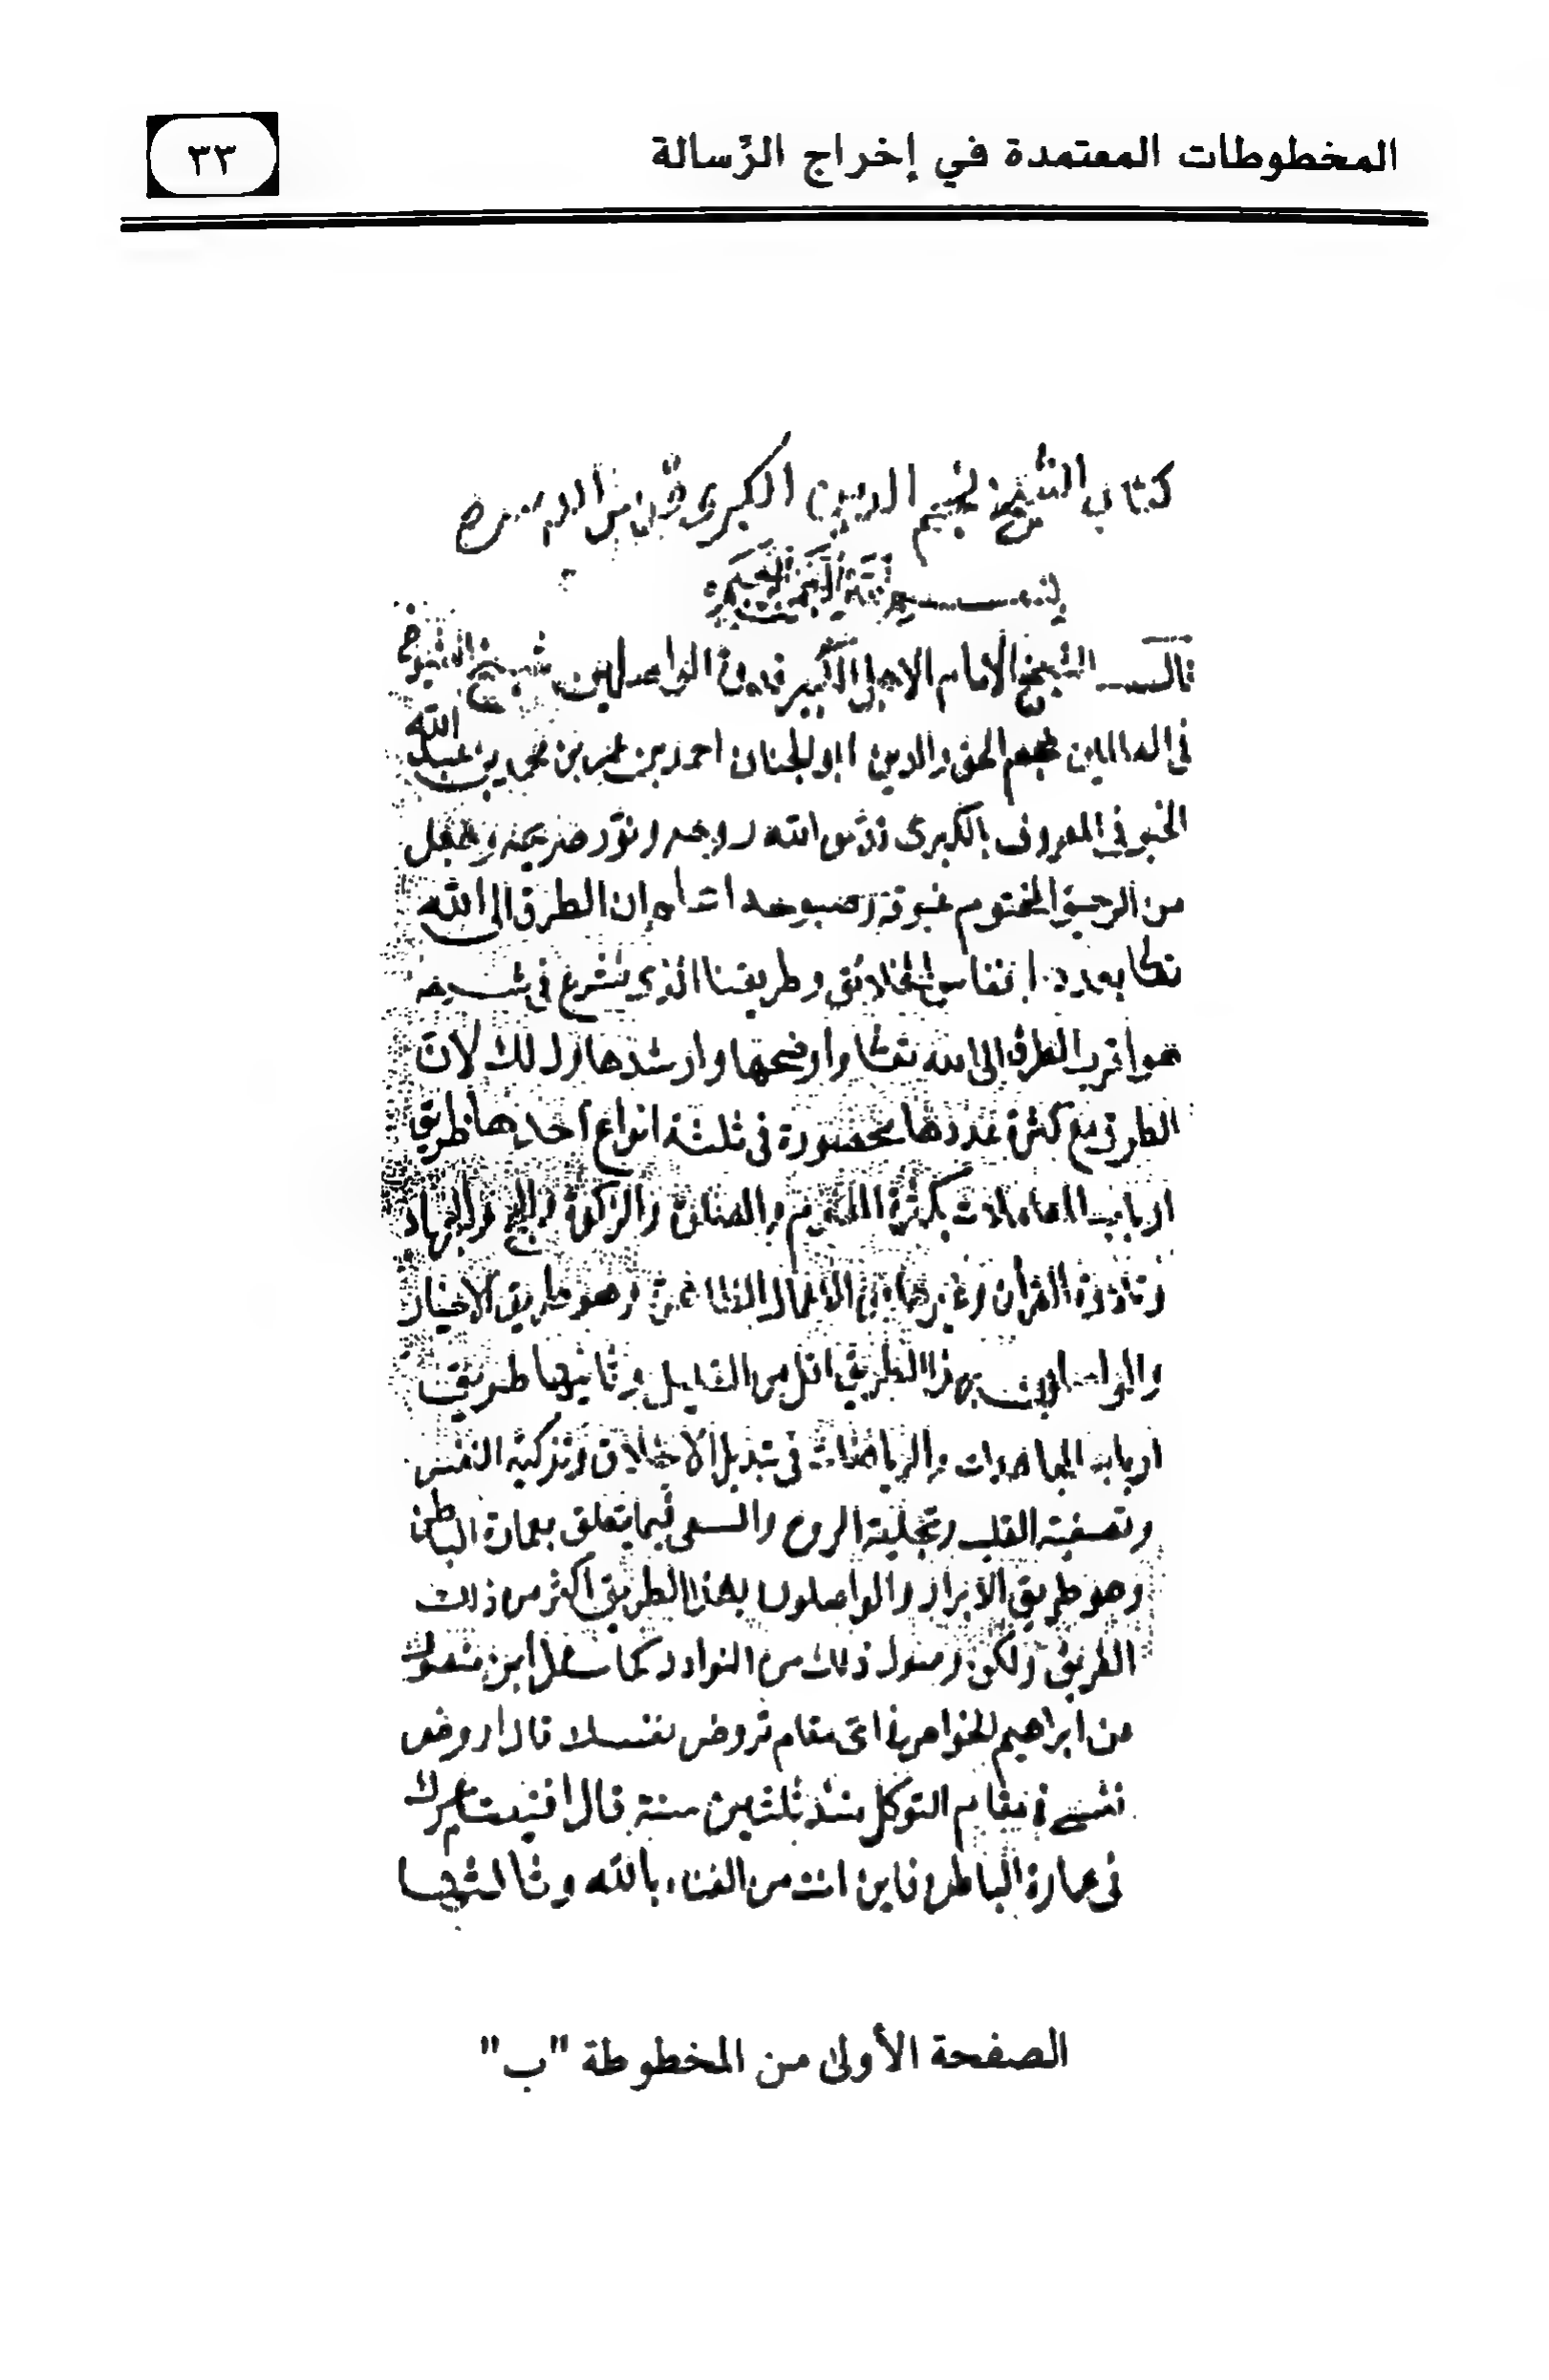 المخطوطات المعتمدة في إخراج الرِّسالة
٣٣
كتاب الشيخ نجم الدين الكبرى قدس الله سره
بسم الله الرحمن الرحيم
قال الشيخ الامام الاجل الكبير قدوة الواصلين شيخ الشيوخ
فى العالمين نجم الحق والدين ابو الجناب احمد بن عمر بن محمد بن عبد الله
الخيوفى المعروف بالكبرى قدّس الله روحه ونوّر ضريحه وجعل
من الرحيق المختوم غبوقه وصبوحه ان الطرق الى الله
تعالى بعدد انفاس الخلائق وطريقنا الذى نشرع فى شرحه
هو اقرب الطرق الى الله تعالى واوضحها وارشدها وذلك لان
الطرق مع كثرة عددها محصورة فى ثلثة انواع احدها طريق
ارباب المعاملات بكثرة الصوم والصلاة والزكوة والحج والجهاد
وتلاوة القرآن وغيرها من الاعمال الظاهرة وهو طريق الاخيار
والواصلون بهذا الطريق اقل من القليل وثانيها طريق
ارباب المجاهدات والرياضات فى تبديل الاخلاق وتزكية النفس
وتصفية القلب وتجلية الروح والسعى فيما يتعلق بعمارة الباطن
وهو طريق الابرار والواصلون بهذا الطريق اكثر من ذلك
الطريق ولكن وصول ذلك من النوادر كما سئل ابن منصور
عن ابراهيم الخواص فى اى مقام تروض نفسك قال اروض
نفسى فى مقام التوكل منذ ثلثين سنة قال افنيت عمرك
فى عمارة الباطن فاين انت من الفناء بالله وثالثها
الصفحة الأولى من المخطوطة "ب"